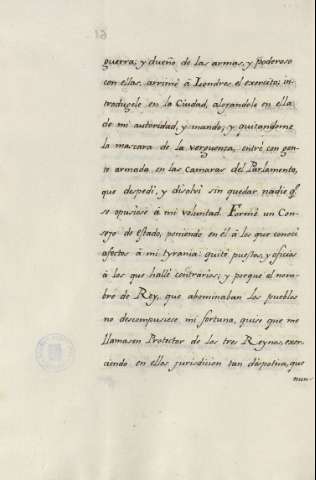 guerra; y dueño de las armas, y poderoso
con ellas, arrimé á Londres el exercito; in-
trodugele en la Ciudad, alojandole en ella
de mi autoridad, y mando; y quitandome
la mascara de la verguenza, entré con gen-
te armada en las Camaras del Parlamento,
que despedi, y disolvi sin quedar nadie q.
se opusiese á mi voluntad. Formé un Con-
sejo de Estado, poniendo en él á los que conoci
afectos á mi tyrania: quité puestos, y oficios
á los que hallé contrarios; y porque el nom-
bre de Rey, que abominaban los pueblos
no descompusiese mi fortuna, quise que me
llamasen Protector de los tres Reynos, exer-
ciendo en ellos jurisdicion tan despotica, que
nun-